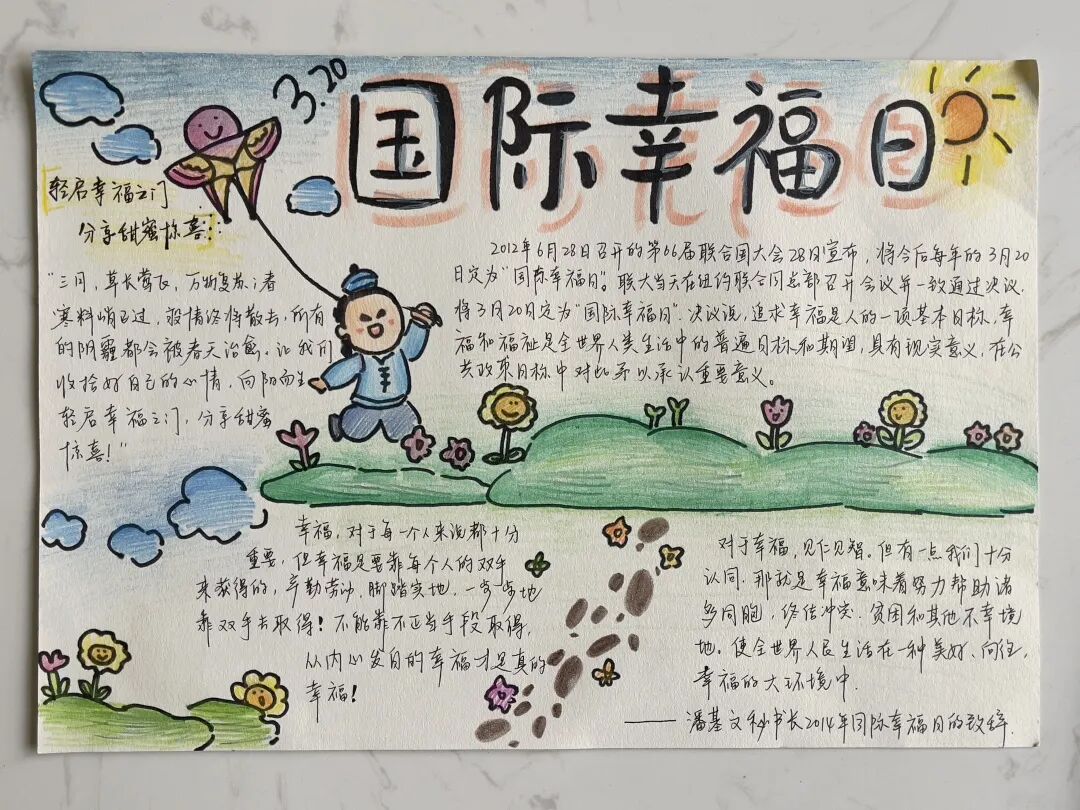 3.20
国际幸福日
轻启幸福之门
分享甜蜜惊喜:
"三月,草长莺飞,万物复苏;春
寒料峭已过,疫情终将散去,所有
的阴霾都会被春天治愈。让我们
收拾好自己的心情,向阳而生
轻启幸福之门,分享甜蜜
惊喜!"
2012年6月28日召开的第66届联合国大会28日宣布,将今后每年的3月20
日定为"国际幸福日"。联大当天在纽约联合国总部召开会议并一致通过决议,
将3月20日定为"国际幸福日".决议说,追求幸福是人的一项基本目标,幸
福和福祉是全世界人类生活中的普遍目标和期望,具有现实意义,在公
共政策目标中对此予以承认重要意义。
幸福,对于每一个人来说都十分
重要,但幸福是要靠每个人的双手
来获得的,辛勤劳动,脚踏实地,一步步地
靠双手去取得!不能靠不正当手段取得,
从内心发自的幸福才是真的
幸福!
对于幸福,见仁见智.但有一点我们十分
认同,那就是幸福意味着努力帮助诸
多同胞,终结冲突.贫困和其他不幸境
地。使全世界人民生活在一种美好、向往,
幸福的大环境中.
——潘基文秘书长2014年国际幸福日的致辞.